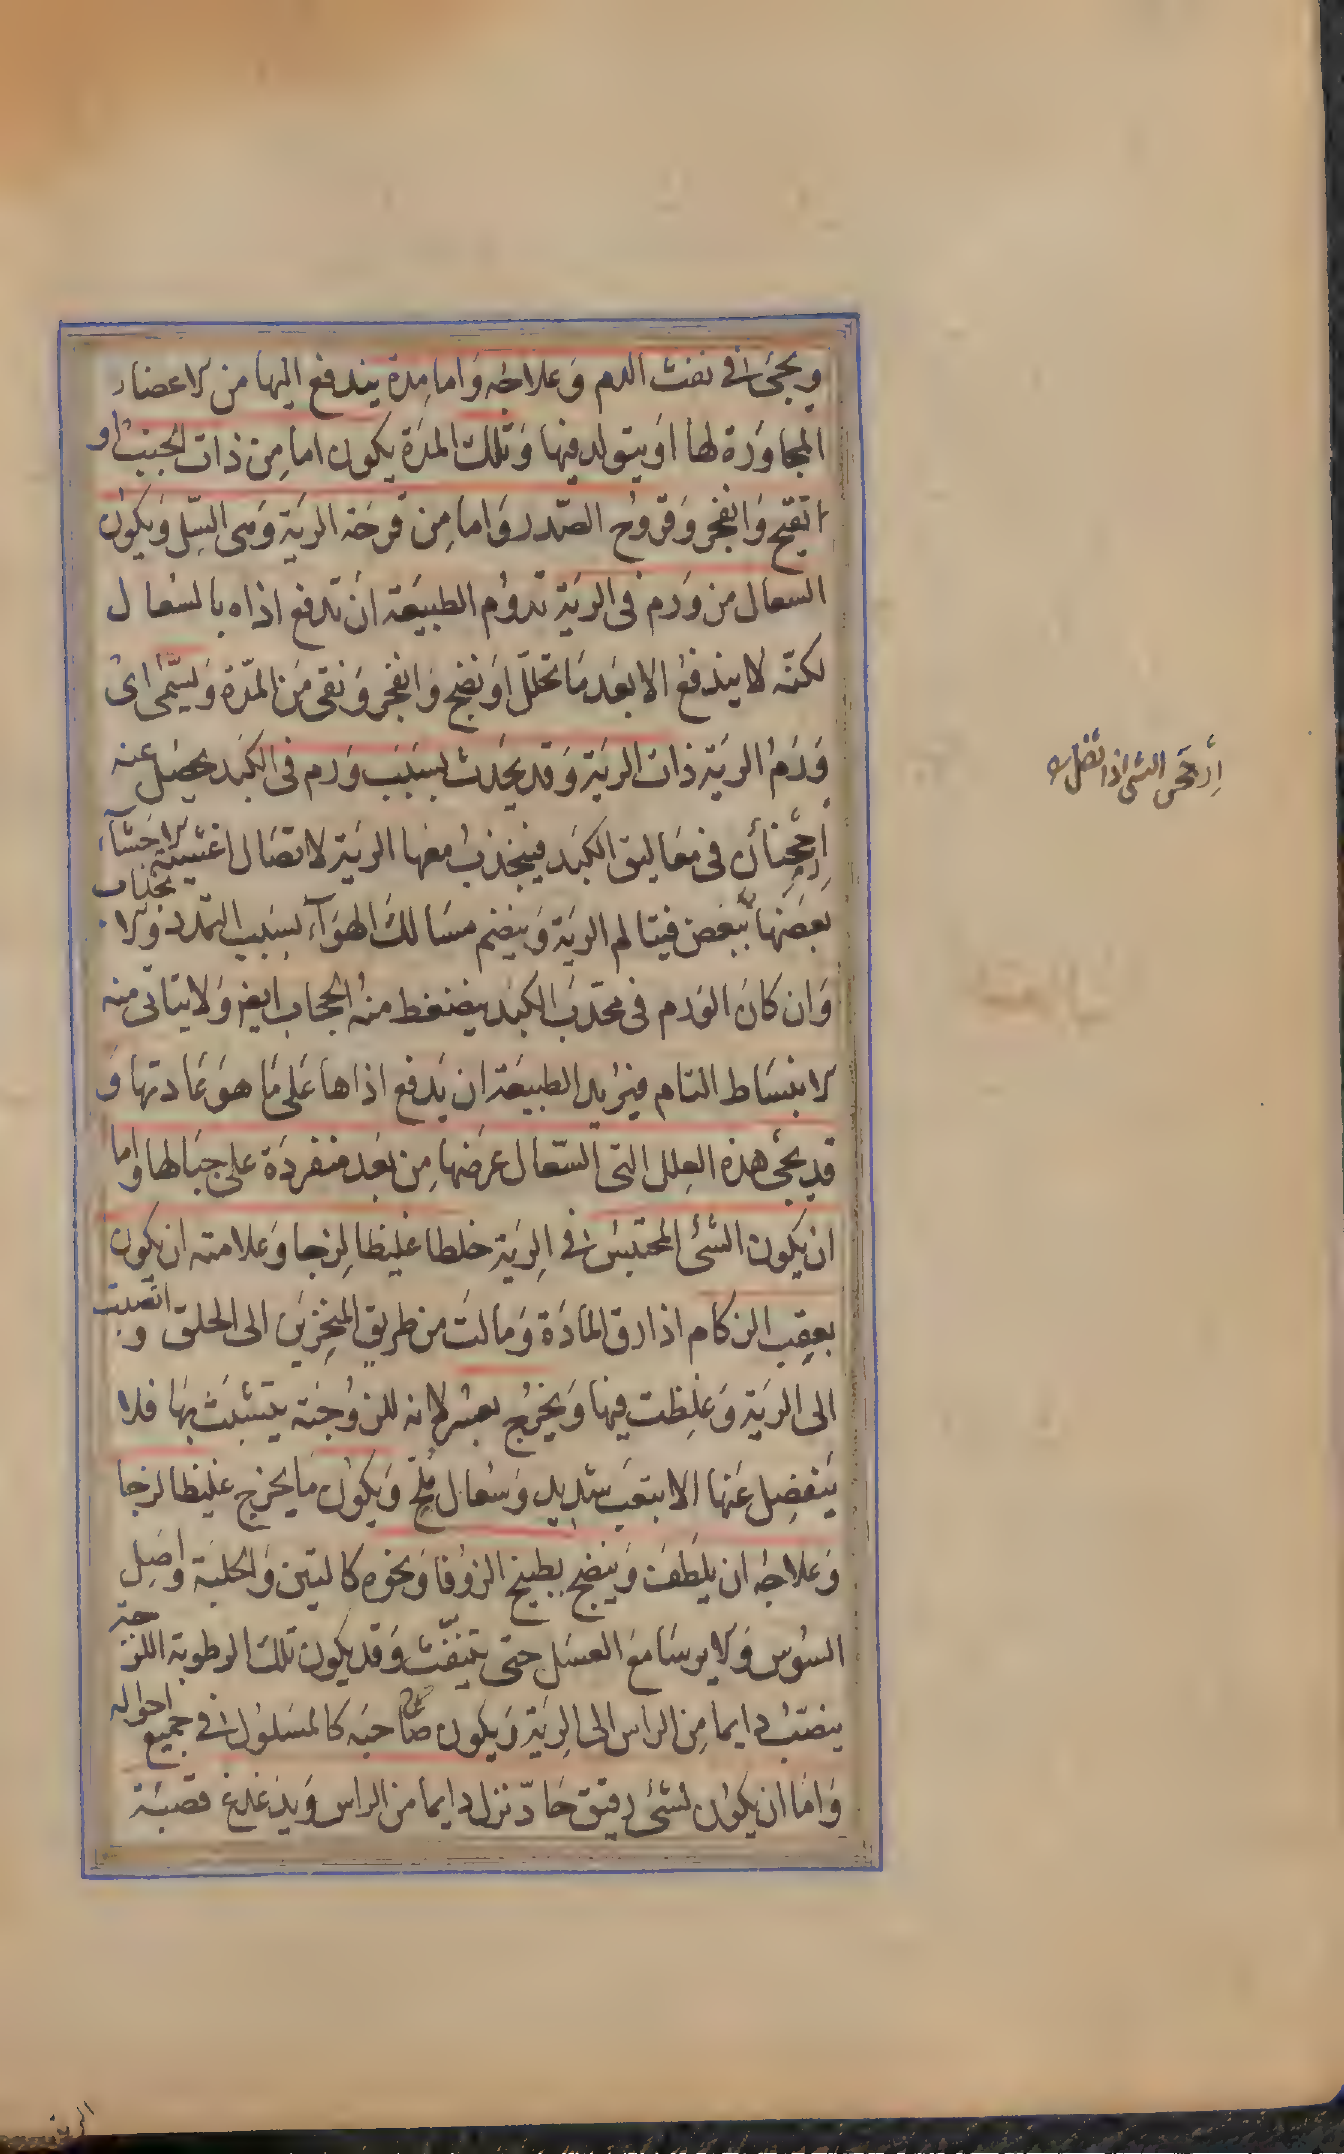 ويجئ في نفث الدم وعلاجه واما مدة يندفع اليها من الاعضاء
المجاورة لها او يتولد فيها وتلك المدة يكون اما من ذات الجنب او
اتقيح وانفجر وقروح الصدر واما من قرحة الرية وهى السل ويكون
السعال من ورم فى الرية تروم الطبيعة ان تدفع اذاه بالسعال
لكنه لا يندفع الا بعد ما تحلل او نضج وانفجر ونقى من المدة ويسمى اى
ورم الرية ذات الرية وقد يحدث بسبب ورم فى الكبد يحصل عنه
ارجحنان فى معاليق الكبد فينجذب معها الرية لاتصال اغشية الاحشاء
بعضها ببعض فيتالم الرية وينضم مسالك الهوآء بسبب التمدد والانجذاب
وان كان الورم فى محدب الكبد يضغط منه الحجاب ايضا ولا يتاتى منه
الانبساط التام فيريد الطبيعة ان يدفع اذاها على ما هو عادتها و
قد يجئ هذه العلل التى السعال عرضها من بعد منفردة على حيالها واما
ان يكون الشئ المحتبس فى الرية خلطا غليظا لزجا وعلامته ان يكون
بعقب الزكام اذا رق المادة ومالت من طريق المنخرين الى الحلق وانصبت
الى الرية وغلظت فيها ويخرج بعسر لانه للزوجته يتشبث بها فلا
ينفصل عنها الا بتعب شديد وسعال ملح ويكون ما يخرج غليظا لزجا
وعلاجه ان يلطف وينضج بطبيخ الزوفا ونحوه كالتين والحلبة واصل
السوس والايرسا مع العسل حتى يتنفث وقد يكون تلك الرطوبة اللزجة
ينصب دايما من الراس الى الرية ويكون صاحبه كالمسلول فى جميع احواله
واما ان يكون لشئ رقيق حاد نزل دايما من الراس ويدغدغ قصبة
ارجحن الشى اذا ثقل
الرية